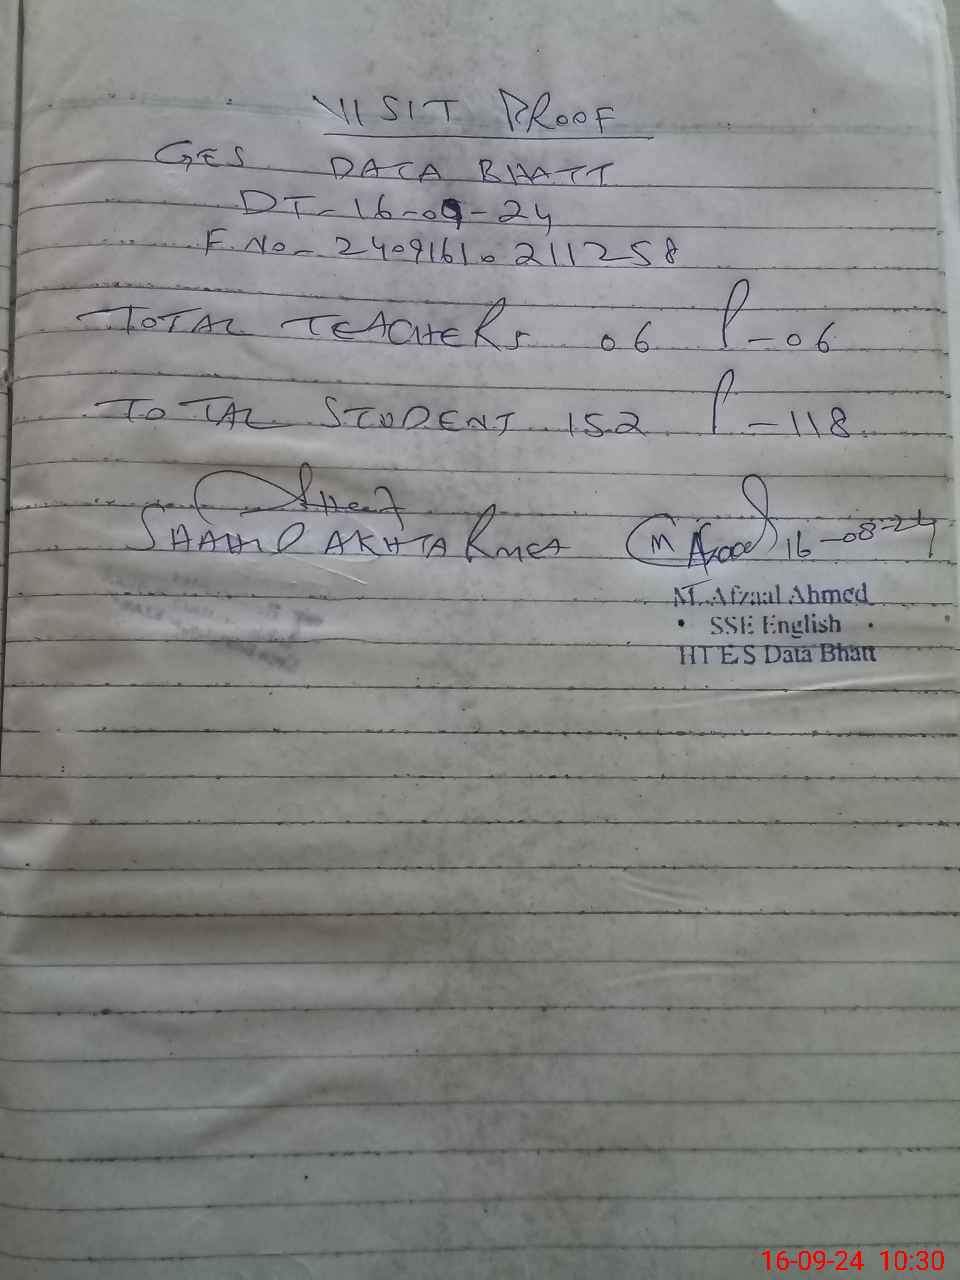 VISIT PROOF
GES DATA BHATT
DT-16-09-24
F.No-24091610211258
TOTAL TEACHERS 06 P-06
TOTAL STUDENT 152 P-118
SHAHID AKHTAR MEA 16-08-24
M. Afzaal Ahmed
SSE English
HT E.S Data Bhatt
16-09-24 10:30